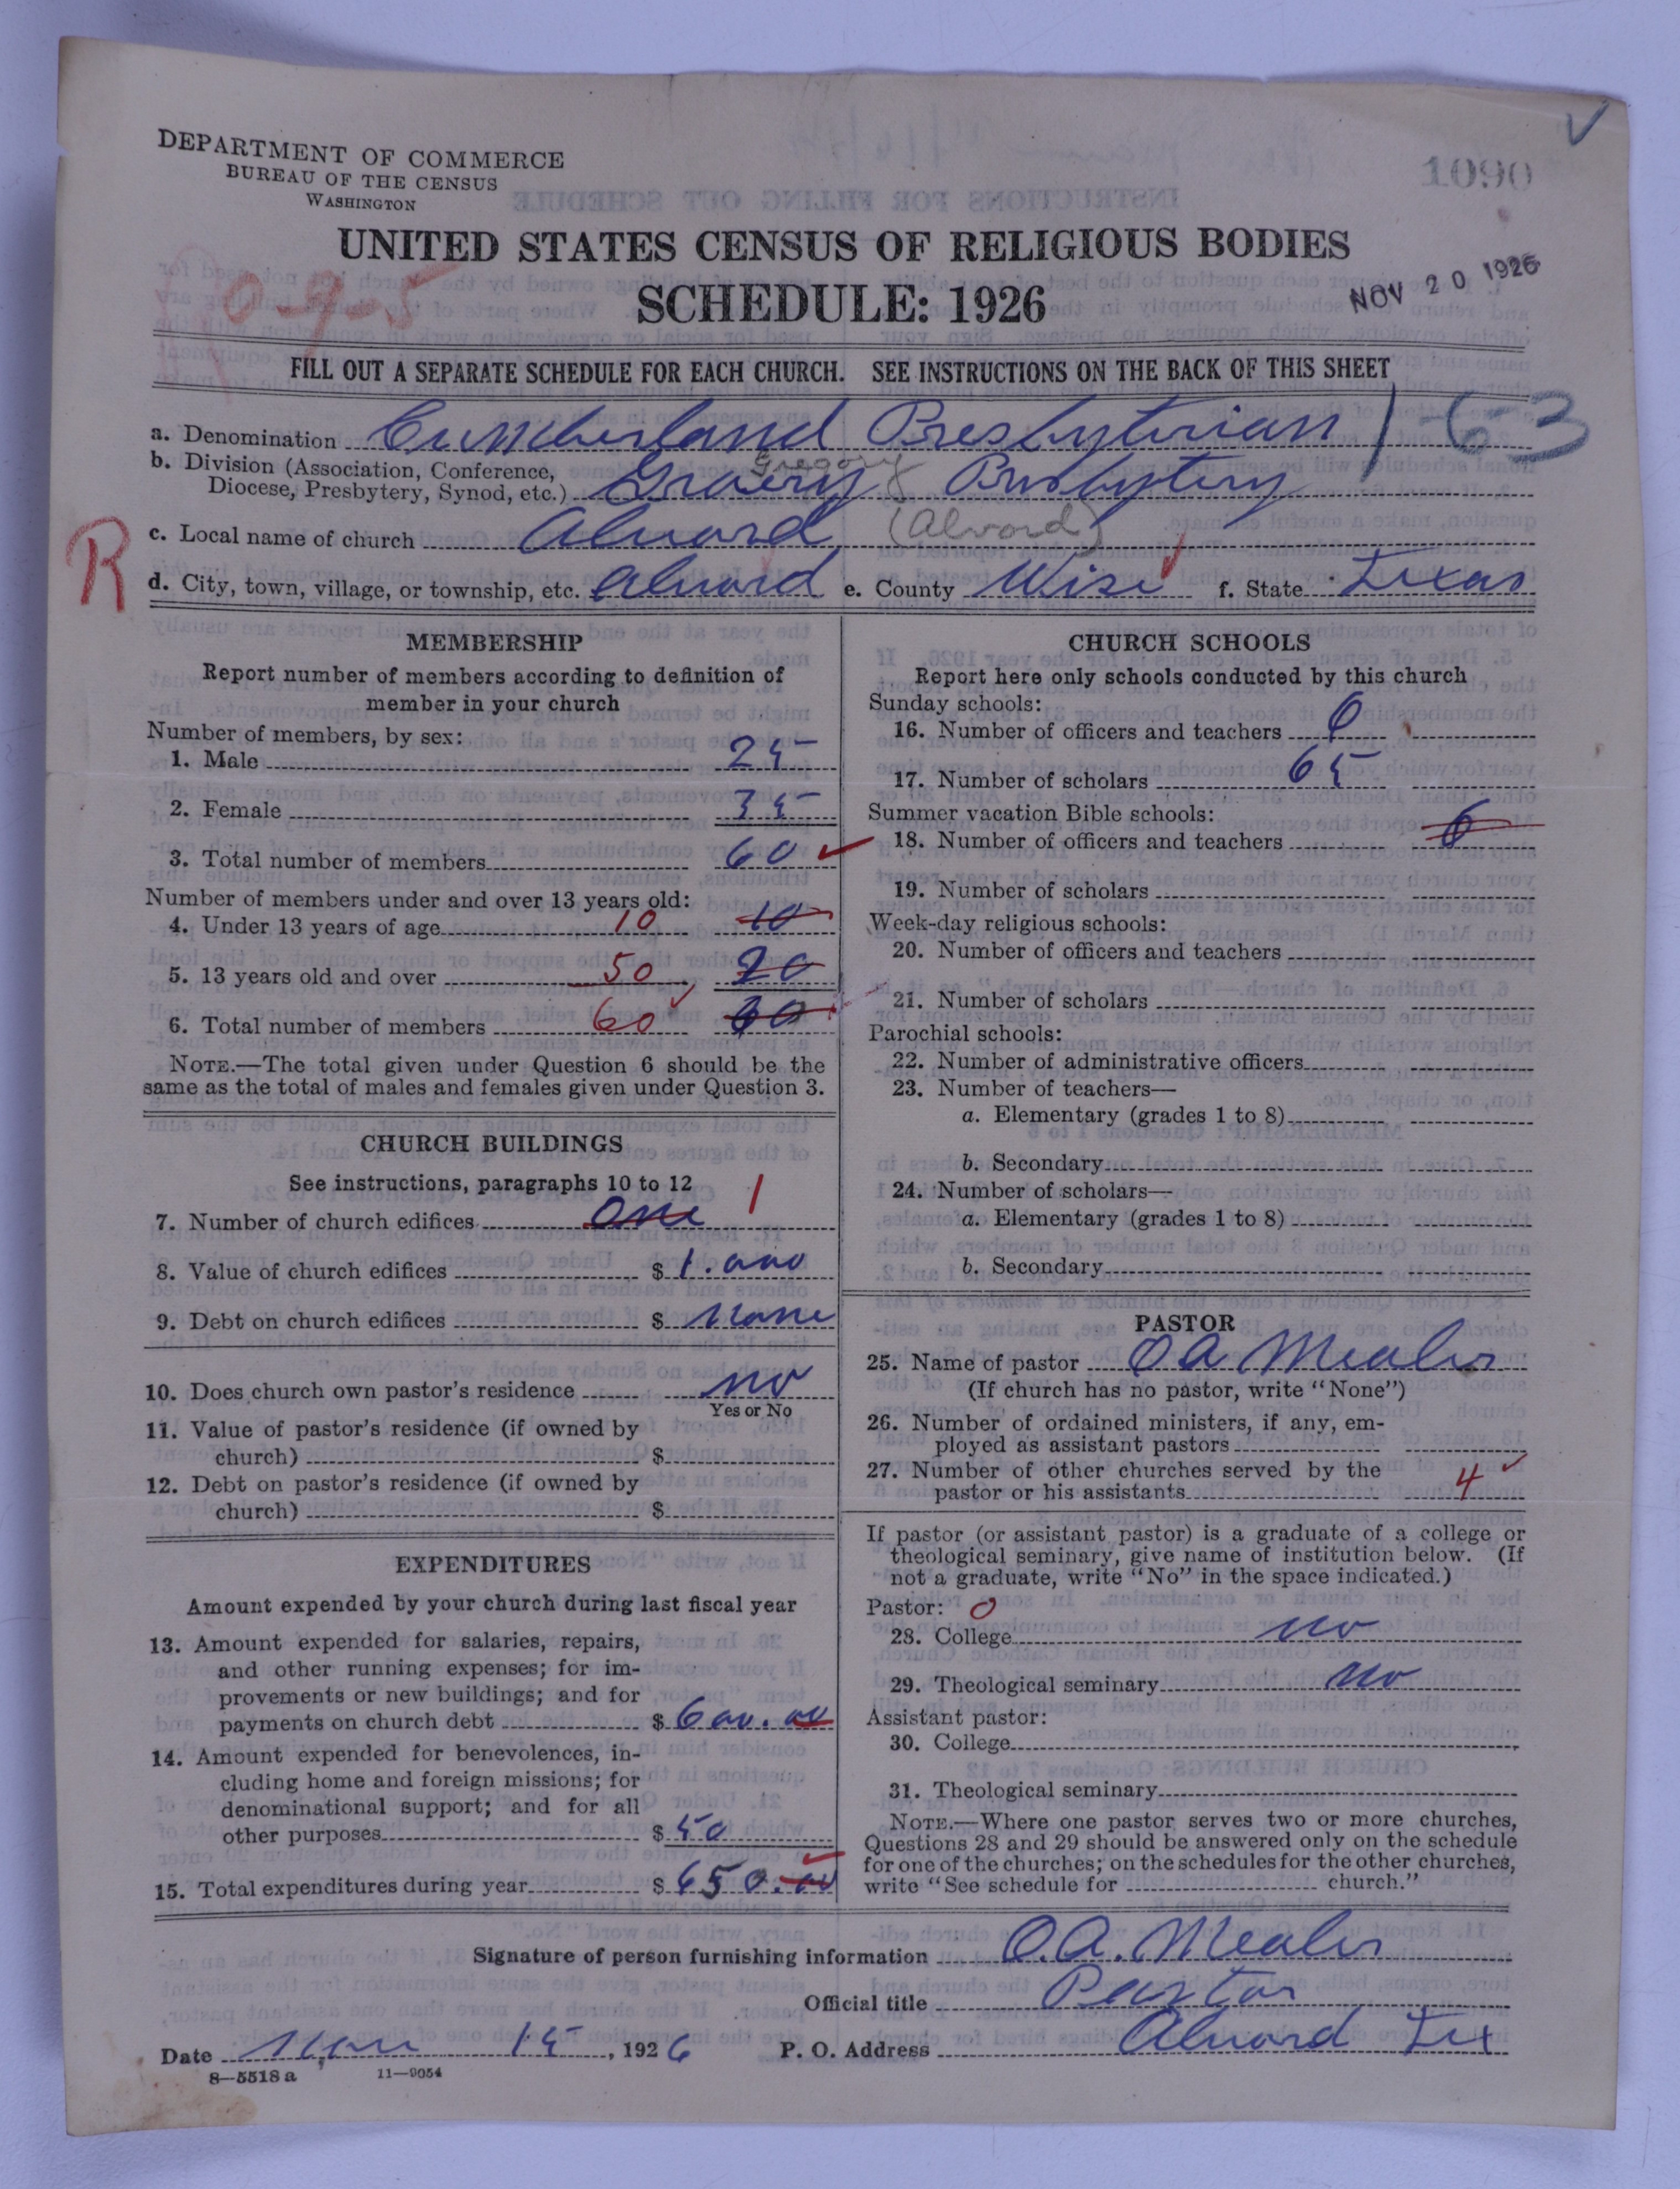 DEPARTMENT OF COMMERCE
BUREAU OF THE CENSUS
WASHINGTON
1090
UNITED STATES CENSUS OF RELIGIOUS BODIES
SCHEDULE: 1926
NOV 20 1926
0-9-5
FILL OUT A SEPARATE SCHEDULE FOR EACH CHURCH. SEE INSTRUCTIONS ON THE BACK OF THIS SHEET
a. Denomination Cumberland Presbyterian 1-63
b. Division (Association, Conference, Gregory
Diocese, Presbytery, Synod, etc.) Presbytery
c. Local name of church Alvord (Alvord)
R
d. City, town, village, or township, etc. Alvord e. County Wise f. State Texas
MEMBERSHIP
Report number of members according to definition of
member in your church
Number of members, by sex:
1. Male 25
2. Female 35
3. Total number of members 60
Number of members under and over 13 years old:
4. Under 13 years of age 10 10
5. 13 years old and over 50 20
6. Total number of members 60
NOTE.—The total given under Question 6 should be the
same as the total of males and females given under Question 3.
CHURCH BUILDINGS
See instructions, paragraphs 10 to 12
7. Number of church edifices One 1
8. Value of church edifices $ 1.000
9. Debt on church edifices $ None
10. Does church own pastor's residence no
Yes or No
11. Value of pastor's residence (if owned by
church) $
12. Debt on pastor's residence (if owned by
church) $
EXPENDITURES
Amount expended by your church during last fiscal year
13. Amount expended for salaries, repairs,
and other running expenses; for im-
provements or new buildings; and for
payments on church debt $ 600.00
14. Amount expended for benevolences, in-
cluding home and foreign missions; for
denominational support; and for all
other purposes $ 50
15. Total expenditures during year $ 650.00
CHURCH SCHOOLS
Report here only schools conducted by this church
Sunday schools:
16. Number of officers and teachers 6
17. Number of scholars 65
Summer vacation Bible schools:
18. Number of officers and teachers 6
19. Number of scholars
Week-day religious schools:
20. Number of officers and teachers
21. Number of scholars
Parochial schools:
22. Number of administrative officers
23. Number of teachers—
a. Elementary (grades 1 to 8)
b. Secondary
24. Number of scholars—
a. Elementary (grades 1 to 8)
b. Secondary
PASTOR
25. Name of pastor O A Mealer
(If church has no pastor, write "None")
26. Number of ordained ministers, if any, em-
ployed as assistant pastors
27. Number of other churches served by the
pastor or his assistants 4
If pastor (or assistant pastor) is a graduate of a college or
theological seminary, give name of institution below. (If
not a graduate, write "No" in the space indicated.)
Pastor: 0
28. College no
29. Theological seminary no
Assistant pastor:
30. College
31. Theological seminary
NOTE.—Where one pastor serves two or more churches,
Questions 28 and 29 should be answered only on the schedule
for one of the churches; on the schedules for the other churches,
write "See schedule for church."
Signature of person furnishing information O.A. Mealer
Official title Pastor
Date Nov 15, 1926 P. O. Address Alvord Tex
8—5518 a 11—9054